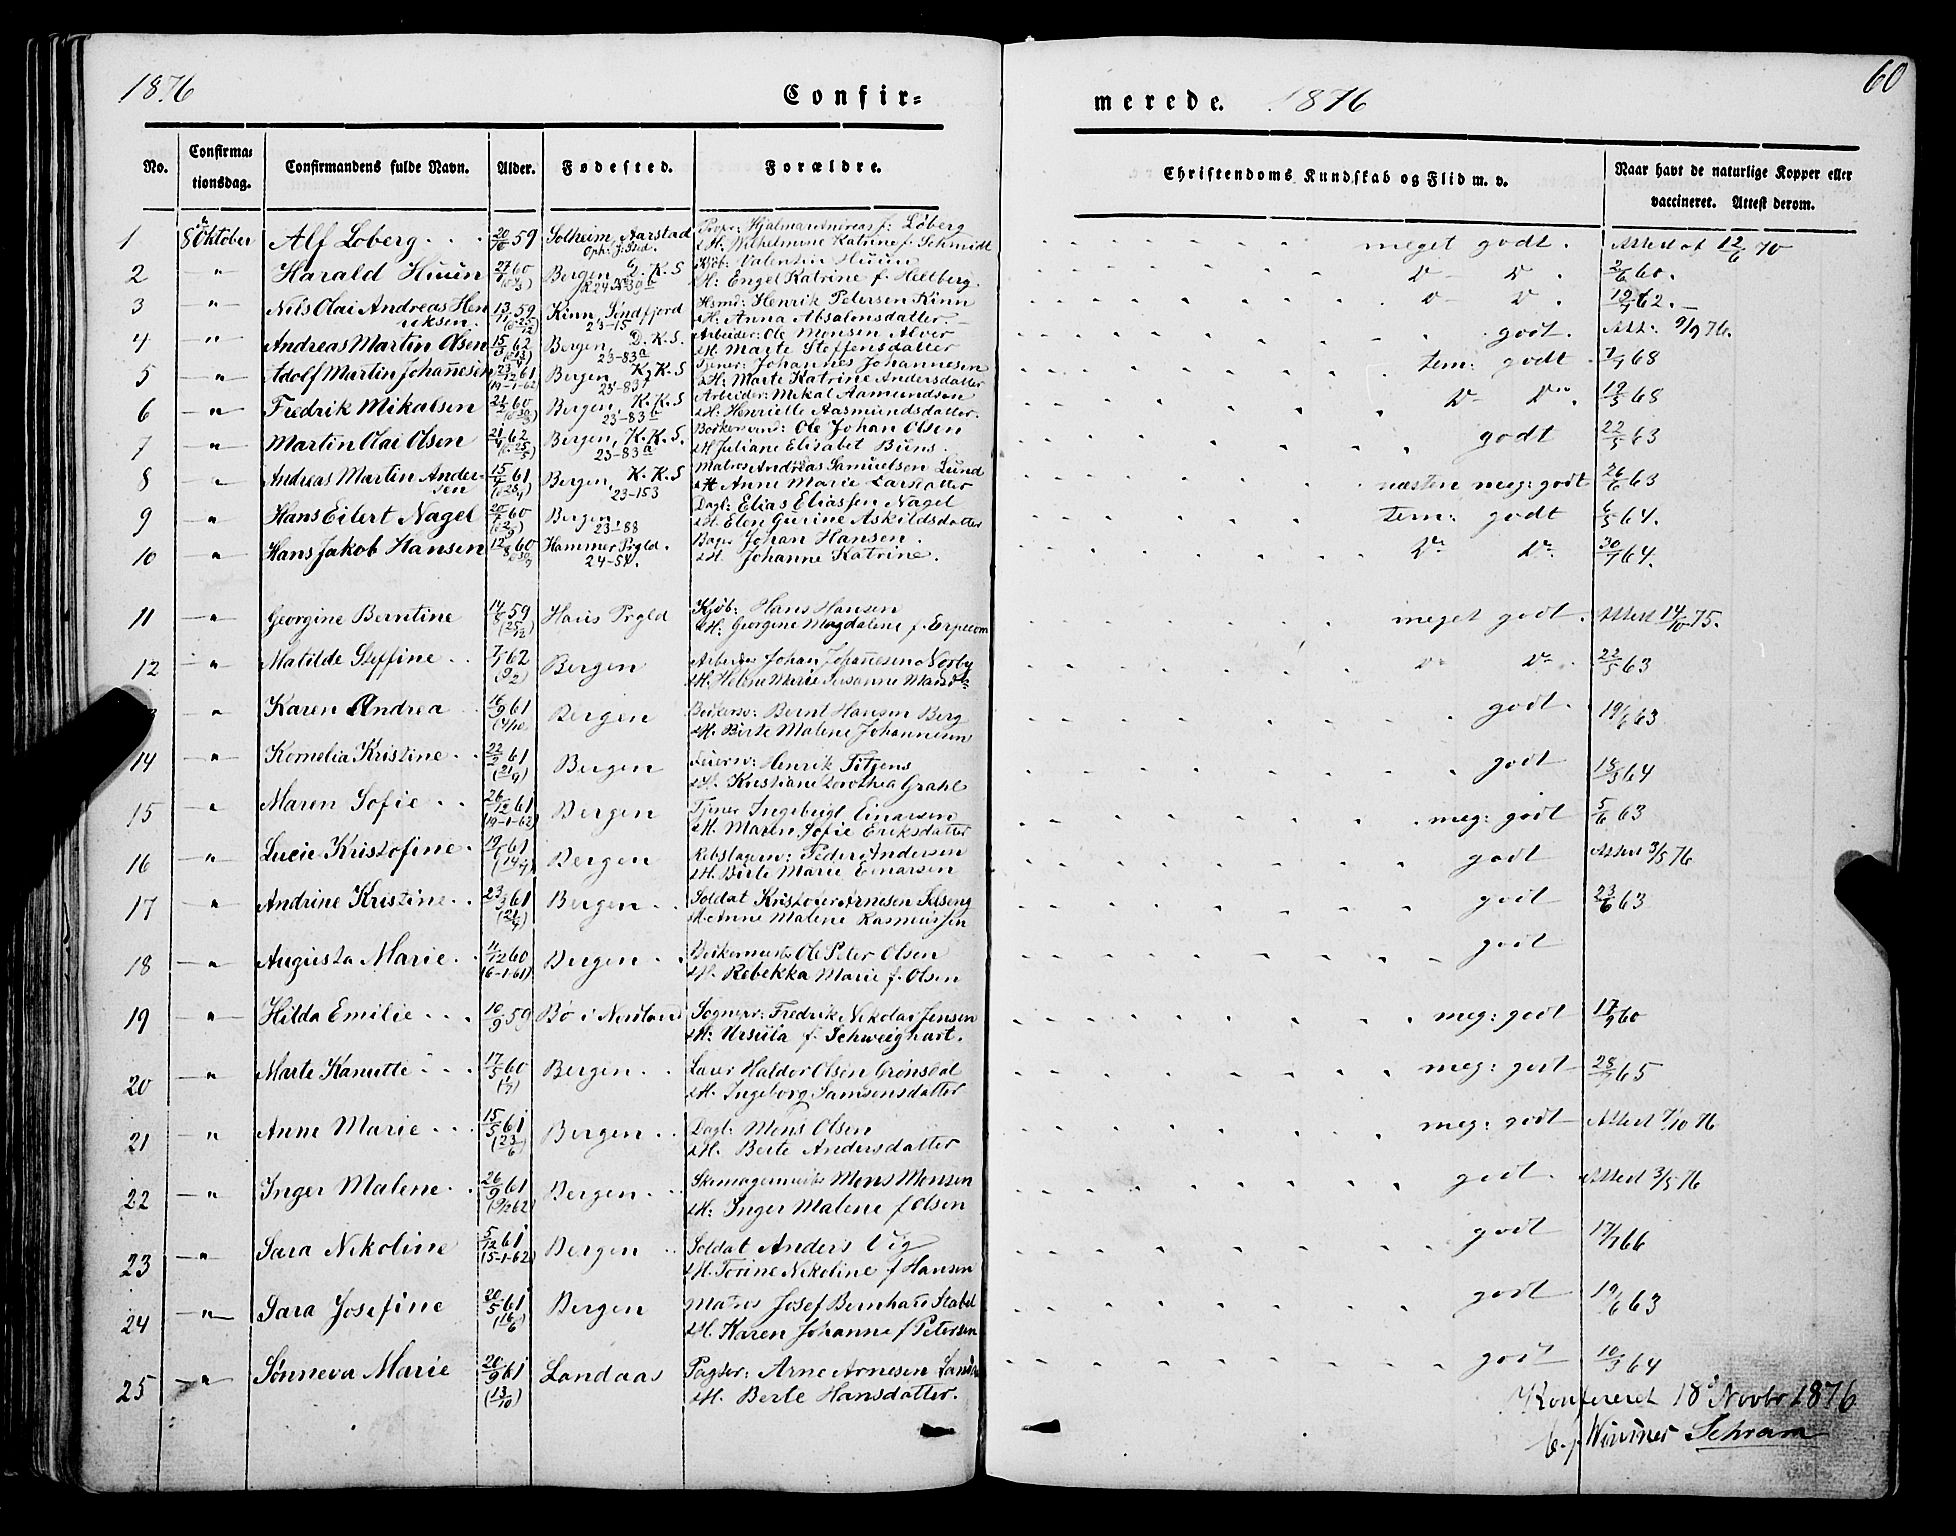 1876
Confir=
merede. 1876
60
No.
Confirma=
tionsdag.
Confirmandens fulde Navn.
Alder.
Fødested.
Forældre.
Christendoms Kundskab og Flid m. v.
Naar havt de naturlige Kopper eller
vaccineret. Attest derom.
1 8 Oktober Alf Løberg 20/10 59 Solheim, Aarstad Hjalmar Andreas f. Løberg
& H. Wilhelmine Katrine f. Schmidt meget godt. Attest af 12/6 70
2 " Harald Huun 27/ 60 Bergen K. S Kjøb: Valentin Huun
& H: Engel Katrine f. Hellberg. D D 2/6 60.
3 " Nils Olai Andreas Hen
riksen. 13/11 59 Kinn, Søndfjord
23-15 Hsmd: Henrik Petersen Kinn
& H: Anna Absalonsdatter. D D 62.
4 " Andreas Martin Olsen 15/3 62 Bergen, D. K. S.
23-83a Arbeider: Ole Monsen Alver
& H. Marte Steffensdatter godt. Att: 9/9 76.
5 " Adolf Martin Johannesen 23/12 61
(19-1-62) Bergen K. K. S
23-83 Tjener: Johannes Johannesen
& H: Marte Katrine Andersdatter tem: godt 68
6 " Fredrik Mikalsen 60 Bergen, K. K. S
23-83 b Arbeider: Mikal Aamundsen
& H: Henriette Aasmundsdatter. D D 68
7 " Martin Olai Olsen 21/4 62 Bergen, K. K. S.
23-83a Ole Johan Olsen
& H Juliane Elisabet Buens. godt 22/5 63
8 " Andreas Martin Ander-
sen 15/4 61 Bergen, K. K. S
23-153 Matros Andreas Samuelsen Lund
& H Anne Marie Larsdatter næsten meg: godt 26/6 63
9 " Hans Eilert Nagel 20/ 60 Bergen,
23-88 Dagl: Elias Eliassen Nagel
& H. Elen Gurine Askildsdatter tem: godt 6/5 64.
10 " Hans Jakob Hansen 12/8 60 Hammer Prgld.
24-51. Johan Hansen.
& H. Johanne Katrine. D D 30/ 64.
11 " Georgine Berntine 14/ 59
(25/12) Haus Prgld Kjøb: Hans Hansen
& H: Georgine Magdalene f. Erpecom meget godt. Attest 14/10 75.
12 " Matilde Steffine 7/1 62 Bergen Arbeider Johan Johannesen Norby
& H. Helene Marie Susanne D D 22/5 63
" Karen Andrea 16/9 61 Bergen Bernt Hansen Berg
& H. Birte Malene Johannesen godt. 63
14 " Kornelia Kristine 22/2 61 Bergen Henrik Titjens
& H. Kristiane Dorothea Grahl godt 18/3 64
15 " Maren Sofie 26/12 61
(19-1-62) Bergen Tjener Ingebrigt Einarsen
& H. Maren Sofie Eriksdatter meg: godt 5/6 63
16 " Lucie Kristofine 19/6 61
(14/7) Bergen Rebslagersv: Peder Andersen
& H. Birte Marie Einarsen godt Attest 3/5 76
17 " Andrine Kristine 23/3 61
(21/4) Bergen Soldat Kristofer Arnesen Selseng
& H. Anne Malene Rasmussen godt 23/6 63
18 " Augusta Marie 11/12 60
(6-1-61) Bergen Ole Peter Olsen
& H. Rebekka Marie f. Olsen godt
19 " Hilda Emilie 10/9 59 Bø i Nordland Sognepr: Fredrik Nikolai Jensen
& H: Ursula f. Schweighart. meg: godt 17/9 60
20 " Marte Kanutte 17/5 60
(1/7) Bergen Halder Olsen Grønsdal
& H. Ingeborg Samsonsdatter meg: godt 28/ 65
21 " Anne Marie 15/5 61
(23/6) Bergen Dagl: Mons Olsen
& H. Berte Andersdatter meg: godt Attest 7/10 76
22 " Inger Malene 26/9 61 Bergen Mons Monsen
& H: Inger Malene f Olsen godt. Attest 3/5 76
23 " Sara Nikoline 5/12 61
(15-1-62) Bergen Soldat Anders Vig
& H. Torine Nikoline f Hansen godt 66
24 " Sara Josefine 20/5 61
(16/6) Bergen Matros Josef Bernhard Stabel
& H. Karen Johanne f Petersen godt 63
25 " Sønneva Marie 20/9 61
(13/10) Landaas Pagter: Arne Arnesen
& H. Berte Hansdatter. godt 10/3 64
Konfereret 18 Novbr 1876
Schram